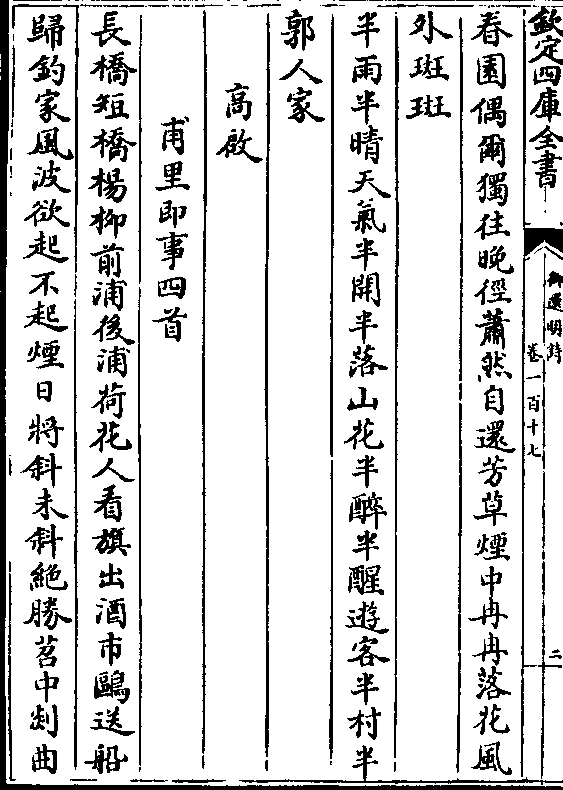 欽定四庫全書
御選明詩
卷一百十七
二
春園偶爾獨往晚徑蕭然自還芳草煙中冉冉落花風
外斑斑
半雨半晴天氣半開半落山花半醉半醒遊客半村半
郭人家
高啟
甫里即事四首
長橋短橋楊柳前浦後浦荷花人看旗出酒市鷗送船
歸釣家風波欲起不起煙日將斜未斜絶勝苕中剡曲